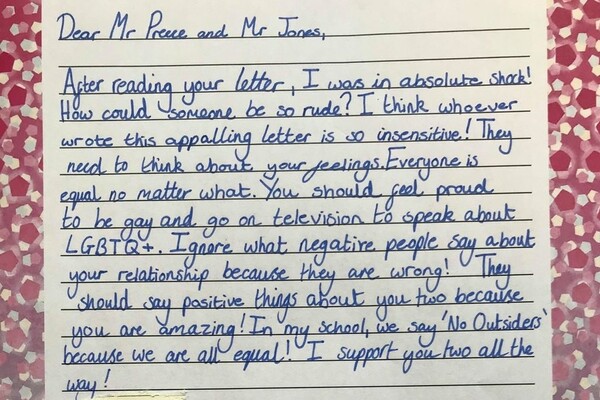 Dear Mr Preece and Mr Jones,
After reading your letter, I was in absolute shock!
How could someone be so rude? I think whoever
wrote this appalling letter is so insensitive! They
need to think about your feelings. Everyone is
equal no matter what. You should feel proud
to be gay and go on television to speak about
LGBTQ+. Ignore what negative people say about
your relationship because they are wrong! They
should say positive things about you two because
you are amazing! In my school, we say 'No Outsiders'
because we are all equal! I support you two all the
way!